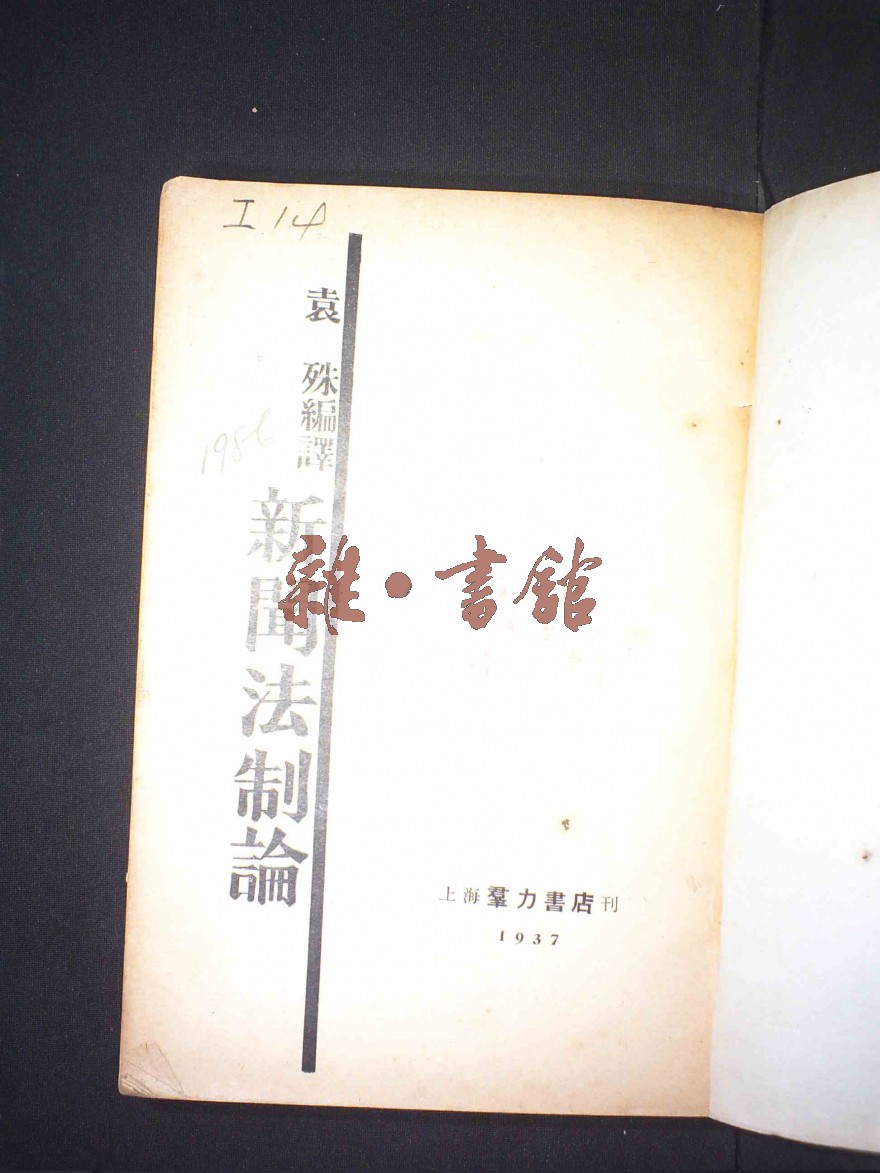 I 14
袁 殊編譯
1986
新聞法制論
雜·書館
上海羣力書店刊
1937